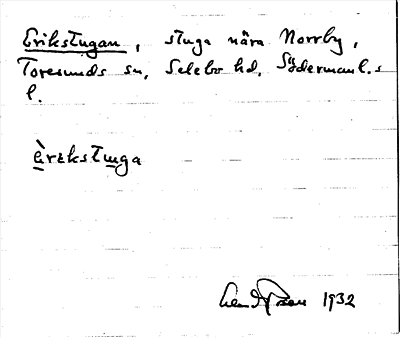 Erikstugan, stuga nära Norrby,
Toresunds sn, Selebo hd, Södermanl.s
l.
èrɛkstɯga
1932